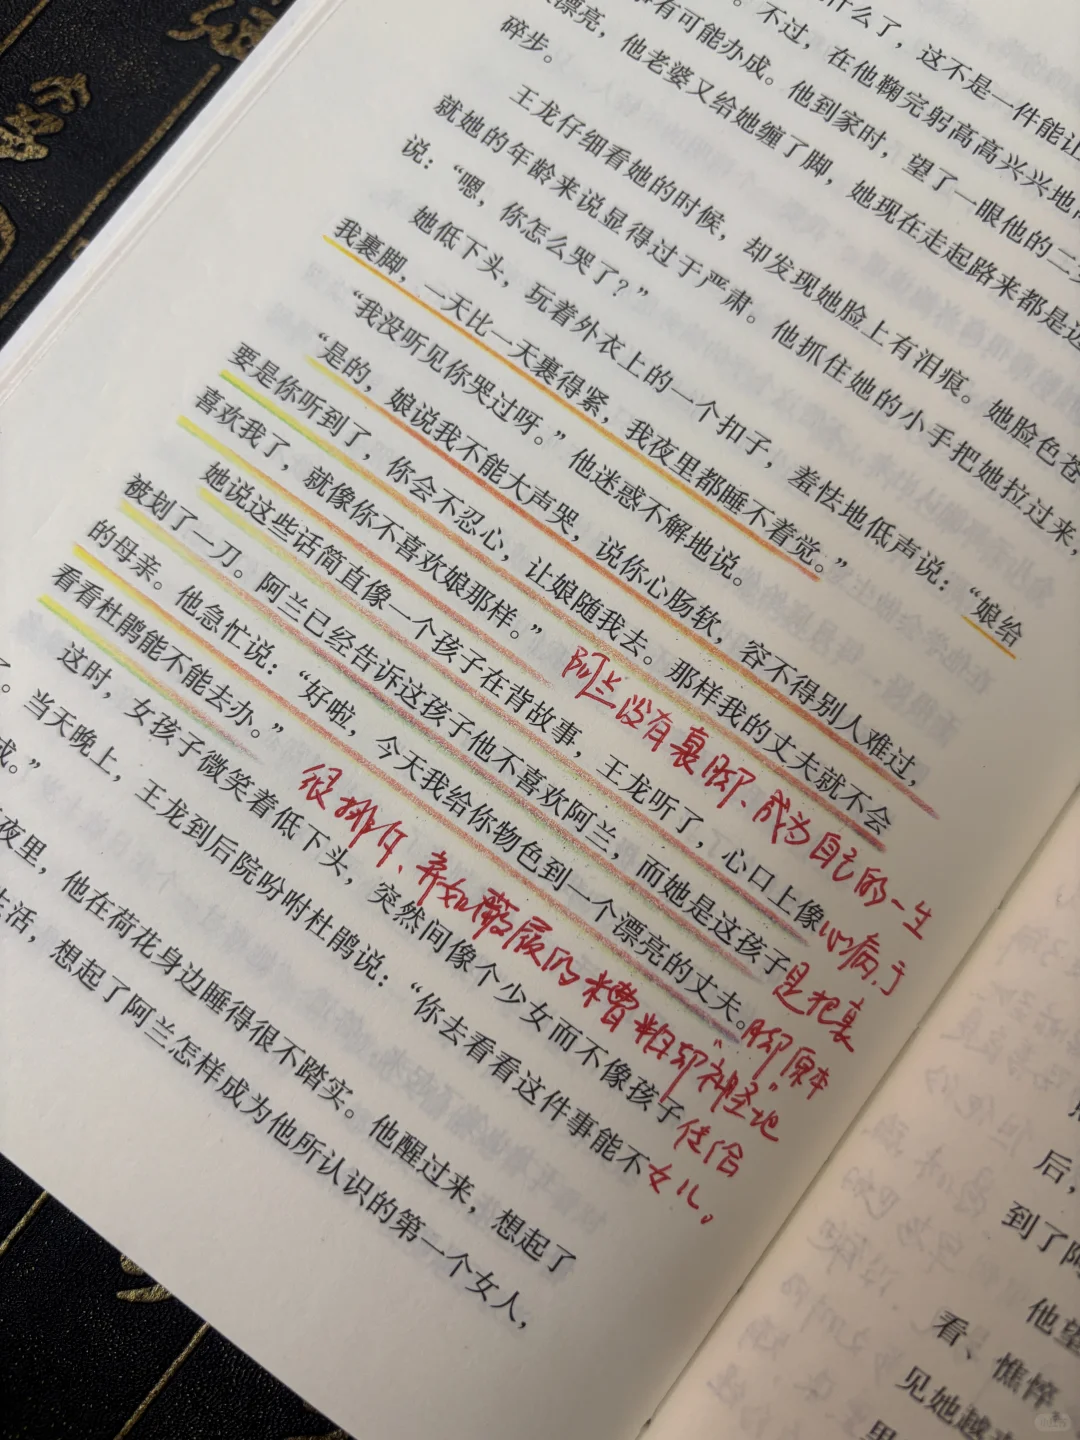 什么了，这不是一件能让
。不过，在他鞠完躬高高兴兴地
有可能办成。他到家时，望了一眼他的二
漂亮，他老婆又给她缠了脚，她现在走起路来都是迈
碎步。
王龙仔细看她的时候，却发现她脸上有泪痕。她脸色苍
就她的年龄来说显得过于严肃。他抓住她的小手把她拉过来，
说：“嗯，你怎么哭了？”
她低下头，玩着外衣上的一个扣子，羞怯地低声说：“娘给
我裹脚，一天比一天裹得紧，我夜里都睡不着觉。”
“我没听见你哭过呀。”他迷惑不解地说。
“是的，娘说我不能大声哭，说你心肠软，容不得别人难过，
要是你听到了，你会不忍心，让娘随我去。那样我的丈夫就不会
喜欢我了，就像你不喜欢娘那样。”
她说这些话简直像一个孩子在背故事，王龙听了，心口上像
被划了一刀。阿兰已经告诉这孩子他不喜欢阿兰，而她是这孩子
的母亲。他急忙说：“好啦，今天我给你物色到一个漂亮的丈夫。
看看杜鹃能不能去办。”
这时，女孩子微笑着低下头，突然间像个少女而不像孩子
了。当天晚上，王龙到后院吩咐杜鹃说：“你去看看这件事能不
成。”
夜里，他在荷花身边睡得很不踏实。他醒过来，想起了
生活，想起了阿兰怎样成为他所认识的第一个女人，
阿兰没有裹脚、成为自己的一生
心病，于
是把裹
脚原本
很排斥、弃如敝屣的糟粕却“神圣”地
传给
女儿。
后，
到了阿
他望
看、憔悴
见她越来